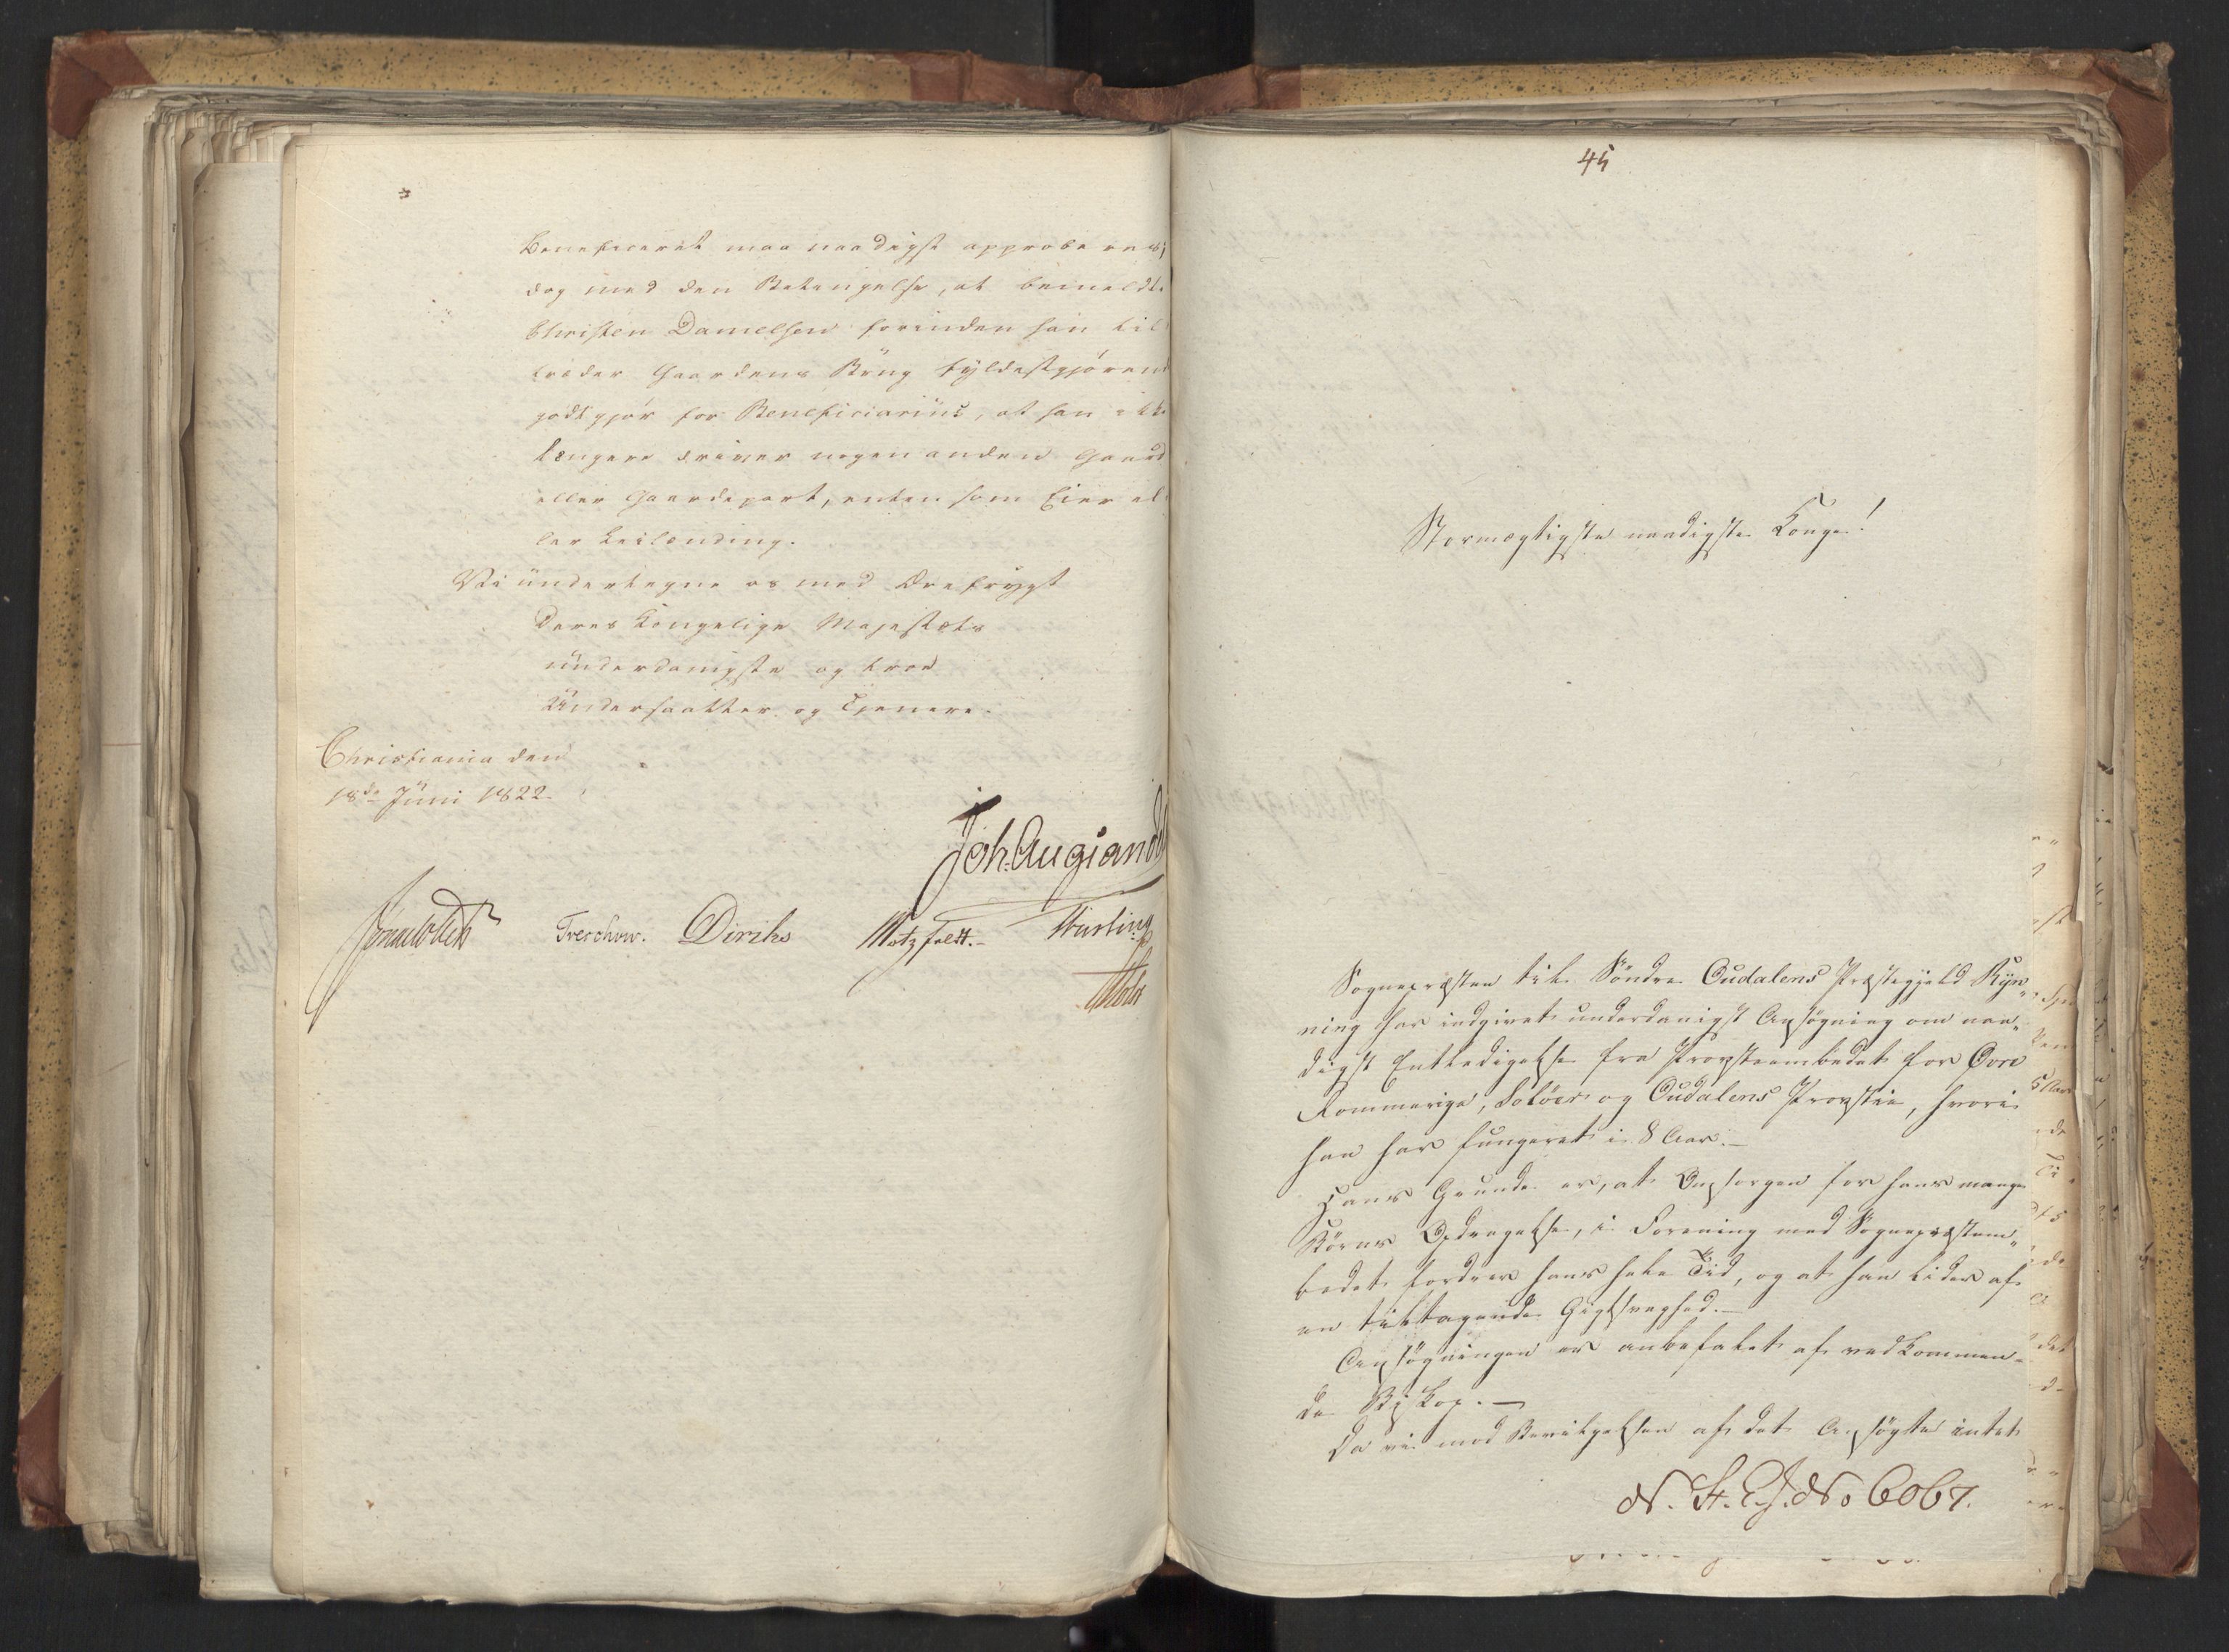 Beneficeret maa naadigst approberes;
dog med den Betingelse, at bemeldte
Christen Danielsen forinden han til
træder Gaardens Brug fyldestgjørend
godtgjør for Beneficiarius, at han ikke
længere driver nogen anden Gaard
eller Gaardepart, enten som Eier el
ler Leilænding.
Vi undertegne os med Ærefrygt
Deres Kongelige Majestæts
underdanigste og troe
Undersaatter og Tjenere.
Christiania den
18de Juni 1822.
Joh. Aug Sandels
Sommerhielm Treschow. Diriks Motzfeldt. Fasting
Holst
45
Stormægtigste naadigste Konge!
Sognepræsten til Söndre Oudalens Præstegjeld Ryn„
ning har indgivet underdanigst Ansøgning om naa„
digst Entledigelse fra Provsteembedet for Øvre
Rommerige, Solöer og Oudalens Provstie, hvori
han har fungeret i 8 Aar.–
Hans Grunde er, at Omsorgen for hans mange
Börns Opdragelse, i Forening med Sognepræstem„
bedet fordrer hans hele Tid, og at han lider af
en tiltagende Gigtsvaghed.–
Ansøgningen er anbefalet af vedkommen„
de Biskop.–
Da vi mod Bevilgelsen af det Ansøgte intet
N. St. E. J. No 6067.